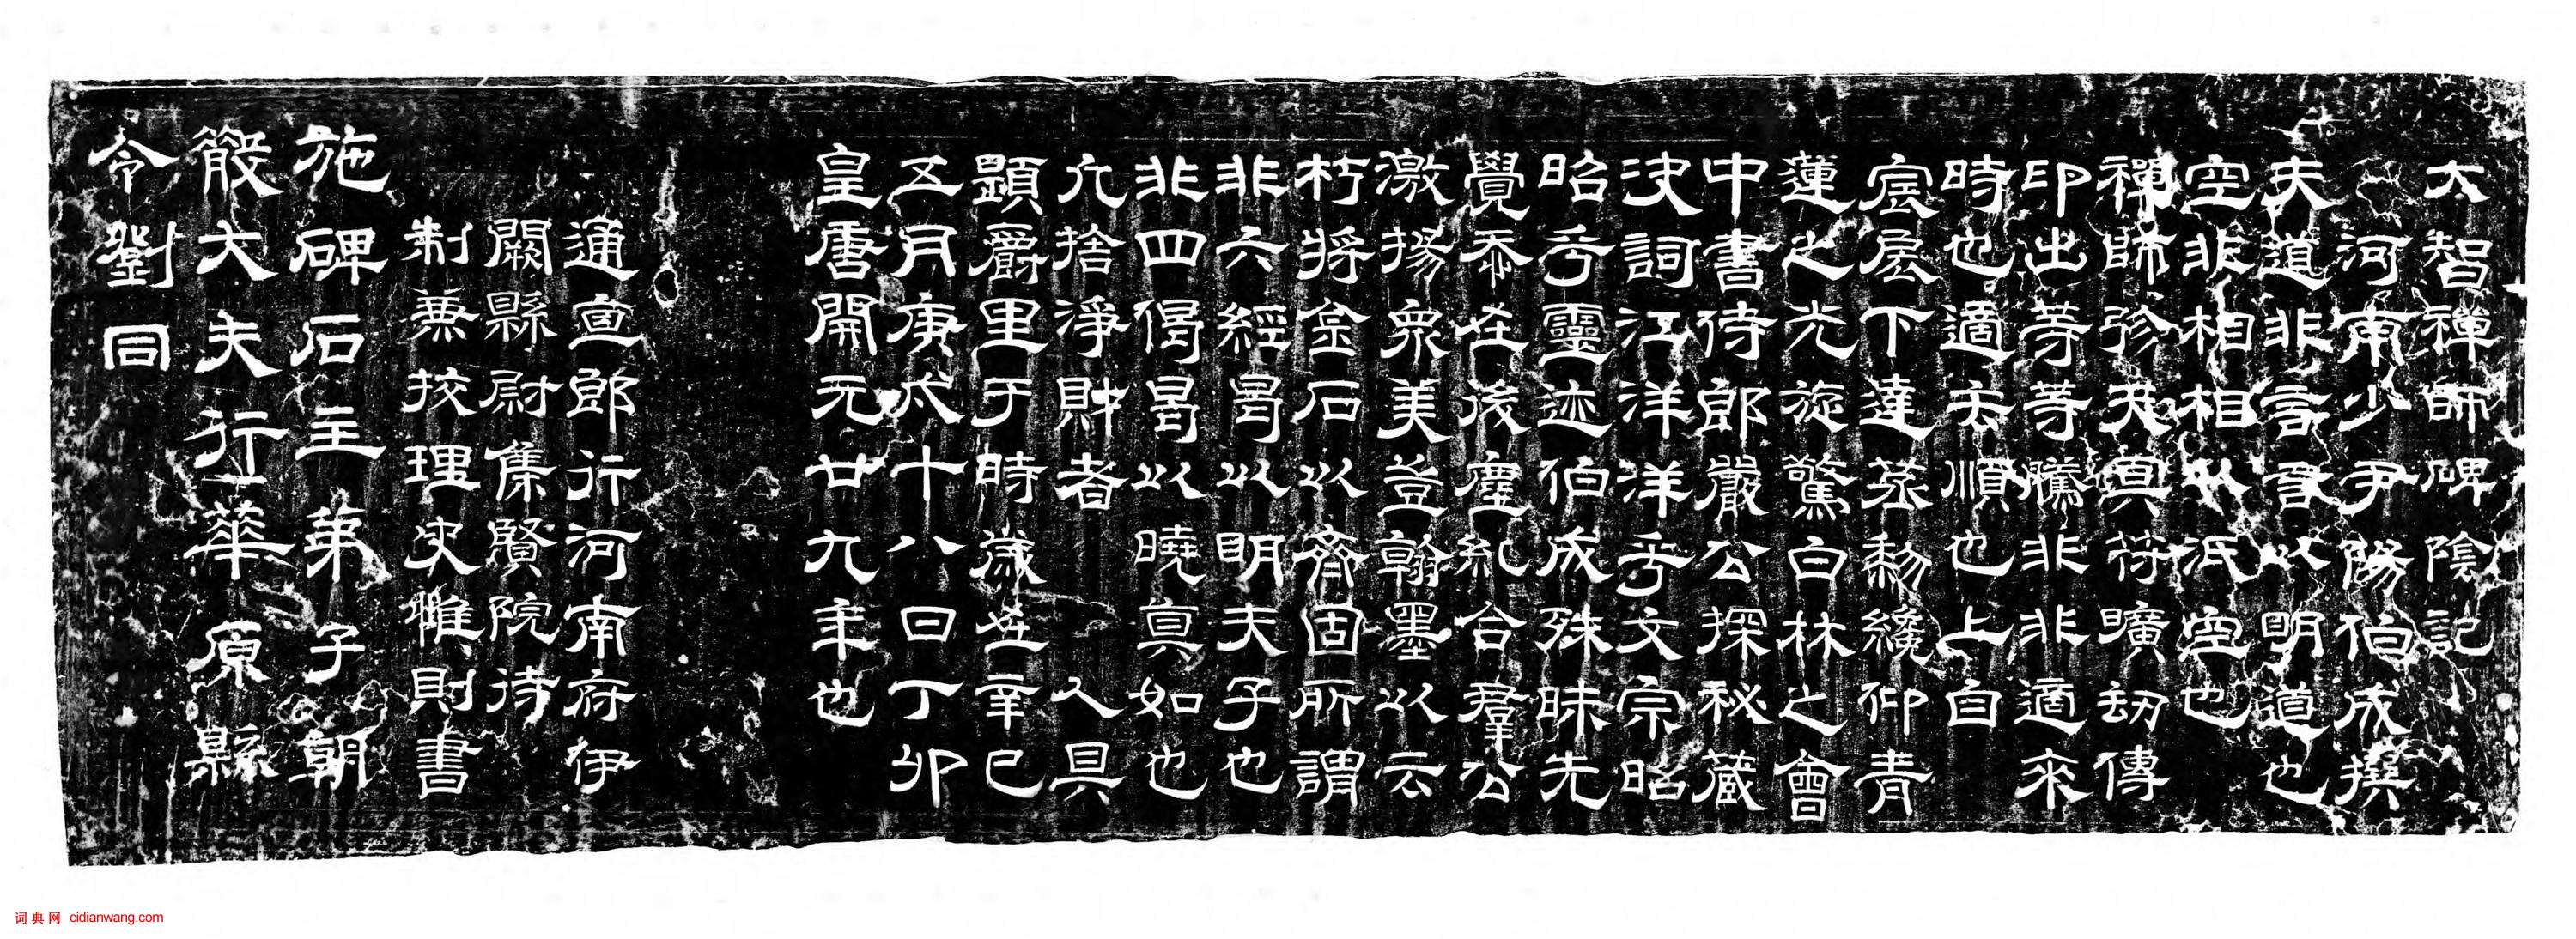 大智禪師碑陰記
河南少尹陽伯成撰
夫道非言言以明道也
空非相相以泯空也
禪師弥天真符曠劫傳
印出等等騰非非適來
時也適去順也上自
宸扆下達蒸黎纔仰青
蓮之光旋驚白林之會
中書侍郎嚴公探秘藏
決詞江洋洋乎文宗昭
昭乎靈迹伯成殊昧先
覺忝在後塵糺合羣公
激揚衆美並翰墨以云
朽將金石以齊固所謂
非六經曷以明夫子也
非四偈曷以曉真如也
凡捨淨財者人具
題爵里于時歲在辛巳
五月庚戌十八日丁卯
皇唐開元廿九年也
通直郎行河南府伊
闕縣尉集賢院待
制兼校理史惟則書
施碑石主弟子朝
散大夫行華原縣
令劉同
词典网 cidianwang.com